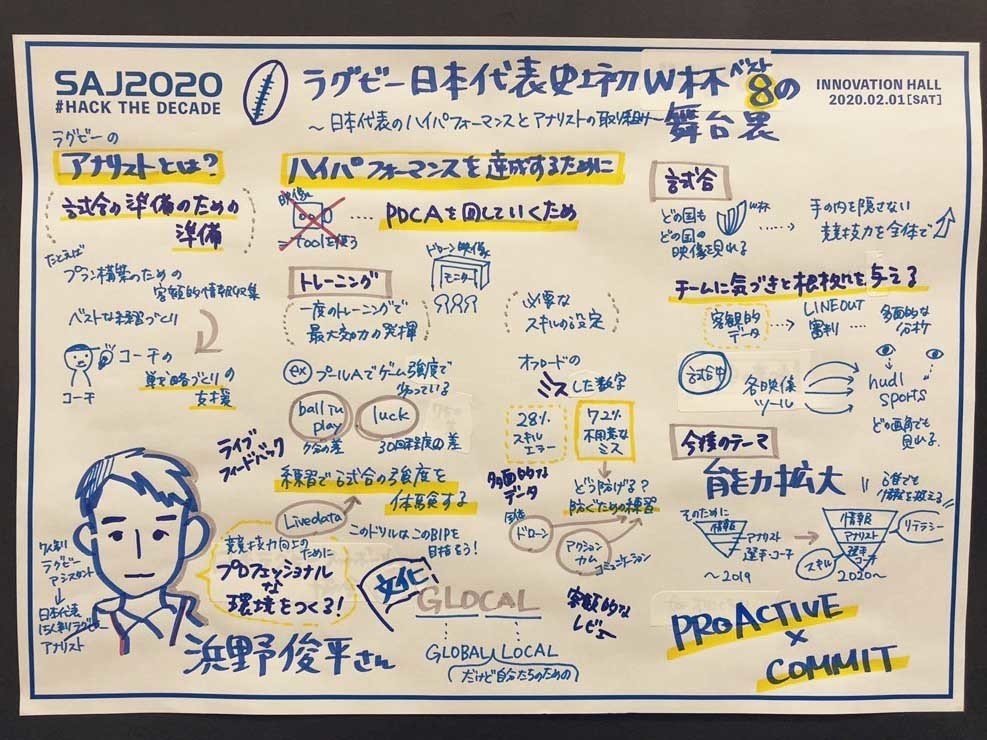 SAJ2020
#HACK THE DECADE
ラグビー日本代表史上初W杯ベスト8の
舞台裏
～日本代表のハイパフォーマンスとアナリストの取り組み～
INNOVATION HALL
2020.02.01[SAT]
ラグビーの
アナリストとは？
試合の準備のための
準備
たとえば
プラン構築のための
客観的情報収集
ベストな練習づくり
コーチ
コーチの
戦略づくりの
支援
ハイパフォーマンスを達成するために
映像
toolを使う
PDCAを回していくため
トレーニング
一度のトレーニングで
最大効力の発揮
ドローン映像
モニター
必要な
スキルの設定
ex プールAでゲーム強度で
劣っている
ball in
play
luck
30回程度の差
ライブ
フィードバック
練習で試合の強度を
体験する
Live data
このドリルはこのBIPを
目指そう！
オフロードの
ミスした数字
28%
スキル
エラー
72%
不用意な
ミス
多面的な
データ
どう防げる？
防ぐための練習
ドローン
アクション
カム
コミュニケーション
客観的な
レビュー
競技力向上の
ために
プロフェッショナル
な
環境をつくる！
文化
GLOCAL
GLOBAL LOCAL
だけど自分たちのための
7人制
ラグビー
アシスタント
日本代表
15人制ラグビー
アナリスト
浜野俊平さん
試合
どの国も
どの国の
映像を見れる
W杯
手の内を隠さない
競技力を全体で
チームに気づきと根拠を与える
客観的
データ
LINEOUT
審判
多面的な
分析
試合中
各映像
ツール
hudl
sports
どの画角でも
見れる
今後のテーマ
能力拡大
そのために
情報
アナリスト
選手・コーチ
～2019
情報
アナリスト
選手
コーチ
スキル
2020～
リテラシー
PROACTIVE
×
COMMIT